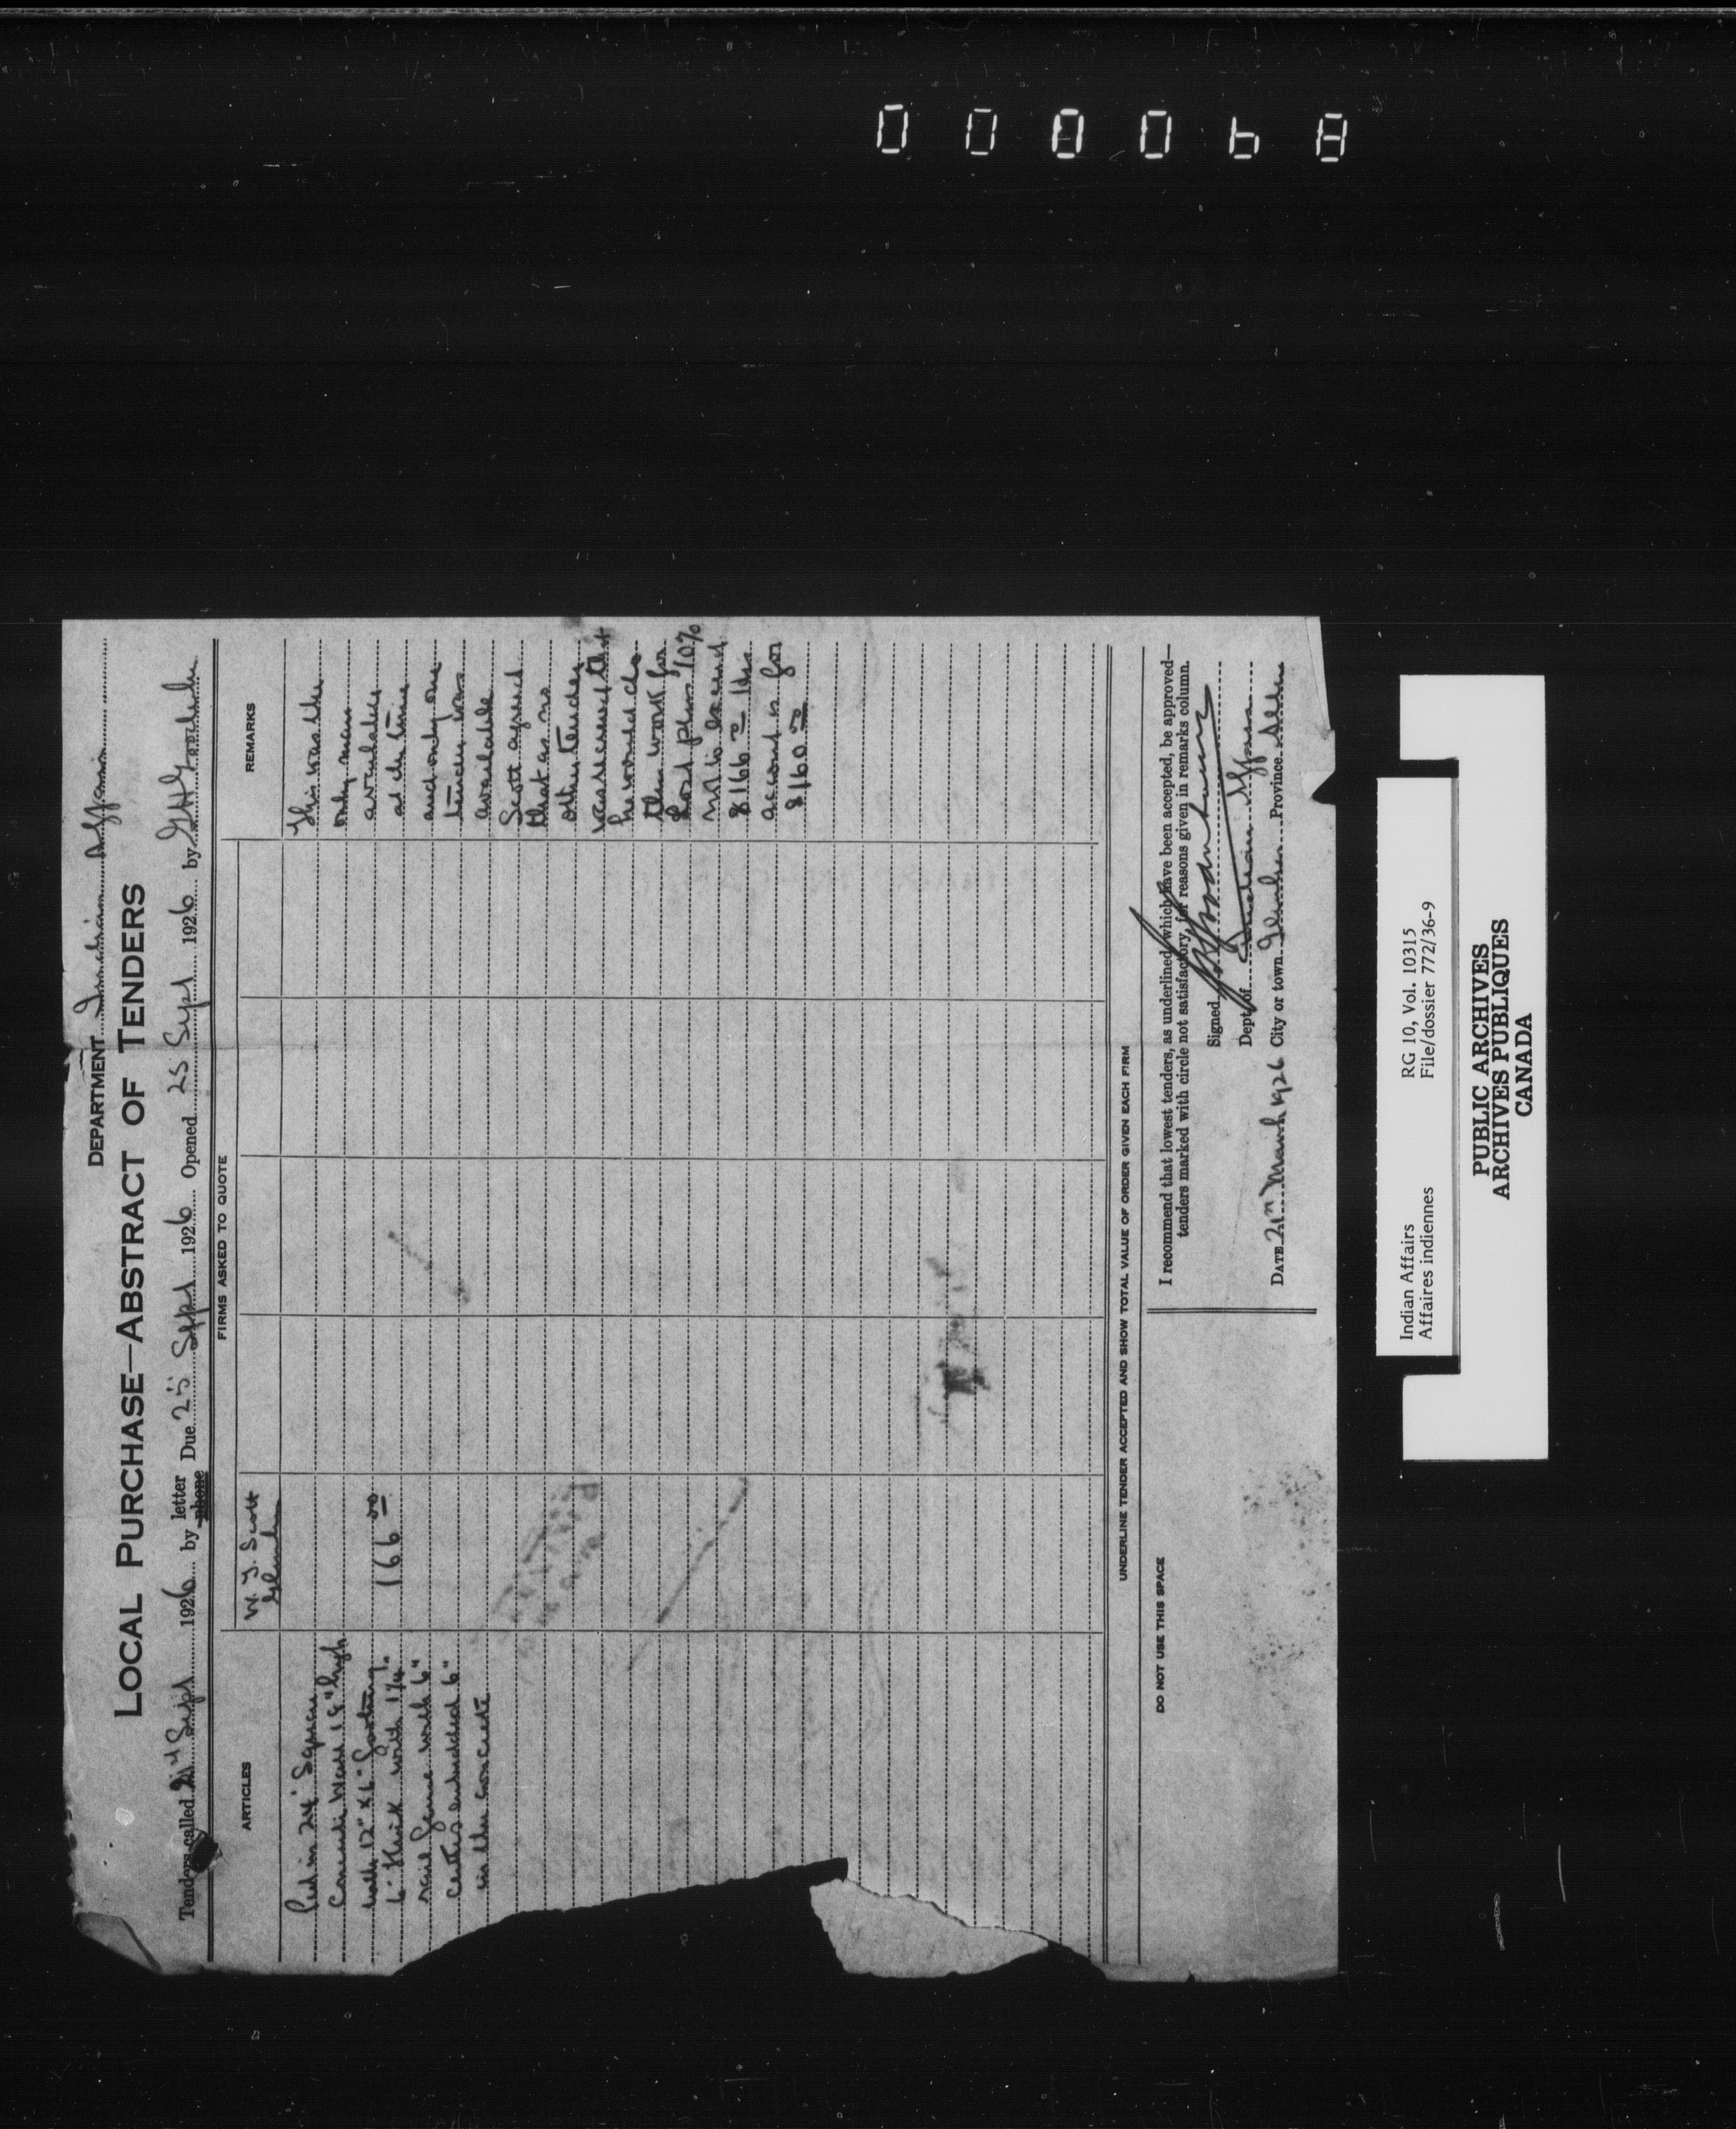 000068
DEPARTMENT Indian Affairs
LOCAL PURCHASE—ABSTRACT OF TENDERS
Tenders called Sept 1926 by letter phone Due 25 Sept 1926 Opened 25 Sept 1926 by
FIRMS ASKED TO QUOTE
ARTICLES
REMARKS
W. J. Scott
Gleichen
24' Square
Concrete Wall 18" high
with 12" x 6" footing
6" thick with 1 1/4
rail fence with 6"
embedded 6"
in the concrete
166 00
This was the
only man
available
at the time
and only one
tender was
available
Scott agreed
that as no
other tender
was received that
he would do
the work for
Cost plus 10%
not to exceed
$166 00 His
account is for
$160 00
UNDERLINE TENDER ACCEPTED AND SHOW TOTAL VALUE OF ORDER GIVEN EACH FIRM
DO NOT USE THIS SPACE
I recommend that lowest tenders, as underlined, which have been accepted, be approved—
tenders marked with circle not satisfactory, for reasons given in remarks column.
Signed
Dept. of Indian Affairs
DATE March 1926 City or town Gleichen Province Alta
Indian Affairs RG 10, Vol. 10315
Affaires indiennes File/dossier 772/36-9
PUBLIC ARCHIVES
ARCHIVES PUBLIQUES
CANADA